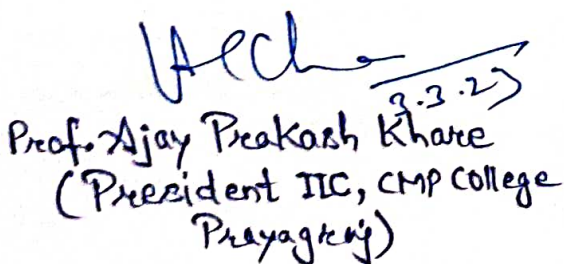 3.3.23
Prof. Ajay Prakash Khare
(President IIC, CMP College
Prayagraj)